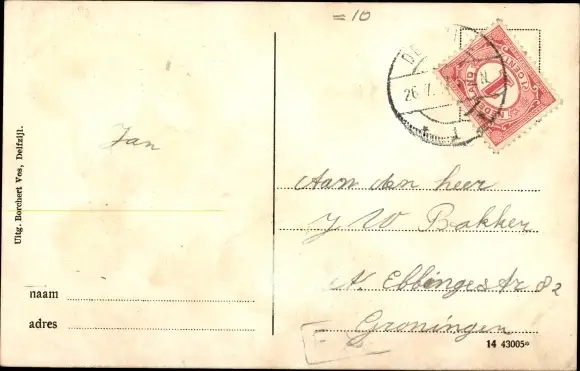 =10
26.7
Jan
Aan den heer
J W Bakker
N. Ebbingestr 82
Groningen
Uitg. Borchert Vos, Delfzijl.
naam
adres
14 43005*